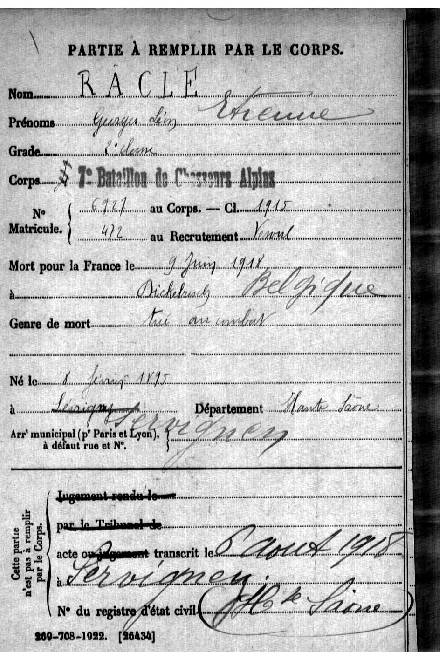 PARTIE À REMPLIR PAR LE CORPS.
Nom RACLE
Prénoms Georges Léon Etienne
Grade 2e classe
Corps 7e Bataillon de Chasseurs Alpins
N° Matricule. { 6927 au Corps. — Cl. 1915
472 au Recrutement Vesoul
Mort pour la France le 9 Juin 1918
à Dickebusch Belgique
Genre de mort tué au combat
Né le 8 février 1895
à Servigney Département Haute Saône
Arrt municipal (pr Paris et Lyon), à défaut rue et N°.
Cette partie n'est pas à remplir par le Corps.
Jugement rendu le
par le Tribunal de
acte ou jugement transcrit le 6 aout 1918
à Servigney
N° du registre d'état civil Hte Saône
269-708-1922. [26434]